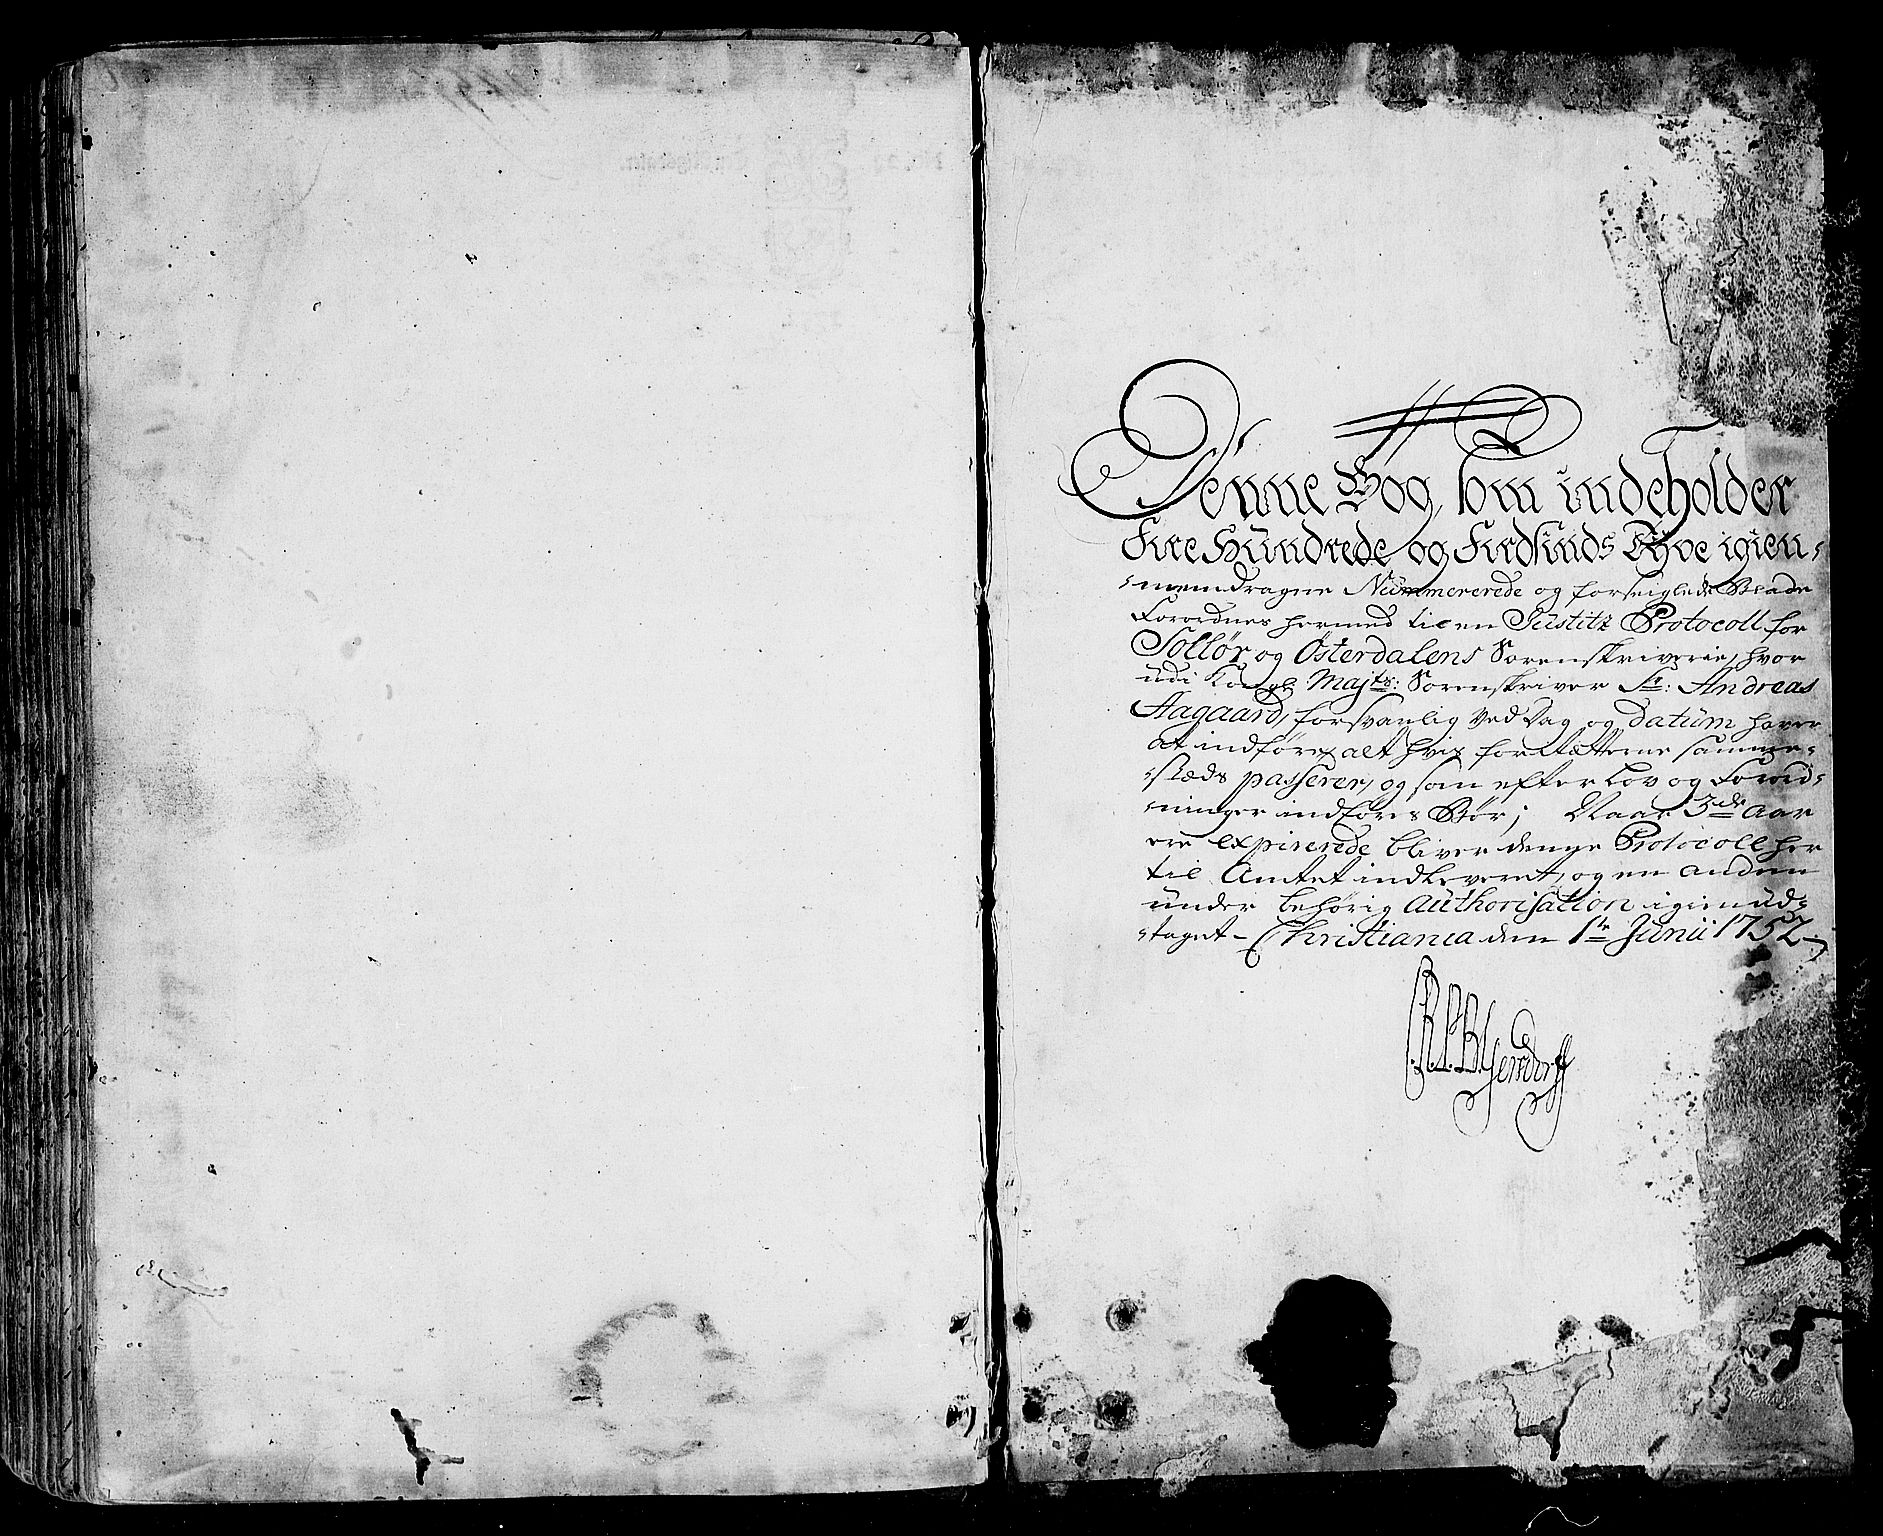 Denne Bog, som indeholder
Fire Hündrede og Firdsinds Tÿve igien-
-nemdragne Nümmererede og forseiglede Blade
Forordnes hermed til en Jüstitz Protocoll for
Solløer og Østerdalens Sorenskriverie, hvor
udi Kongl: Majts: Sorenskriver Sr: Andreas
Aagaard, forsvarlig ved Dag og Datüm haver
at indføre, alt hvis for Rætterne samme-
-stæds passerer, og som efter Lov og Forord-
-ninger indføres Bør; Naar 3de Aar
ere expirerede bliver denne Protocoll her
til Amtet indleveret, og en anden
ünder behørig Authorisation igien üd-
-taget - Christiania den 1te Junii 1752